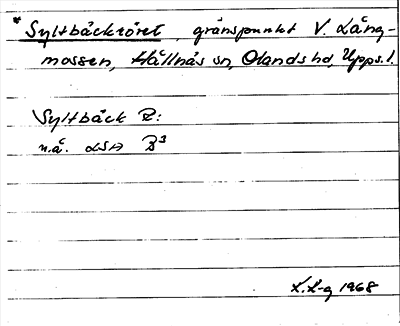 * Syltbäckröret, gränspunkt V. Lång-
mossen, Hållnäs sn, Olands hd, Upps. l.
Syltbäck R:
n.ä. LSA B3
L.L-g 1968